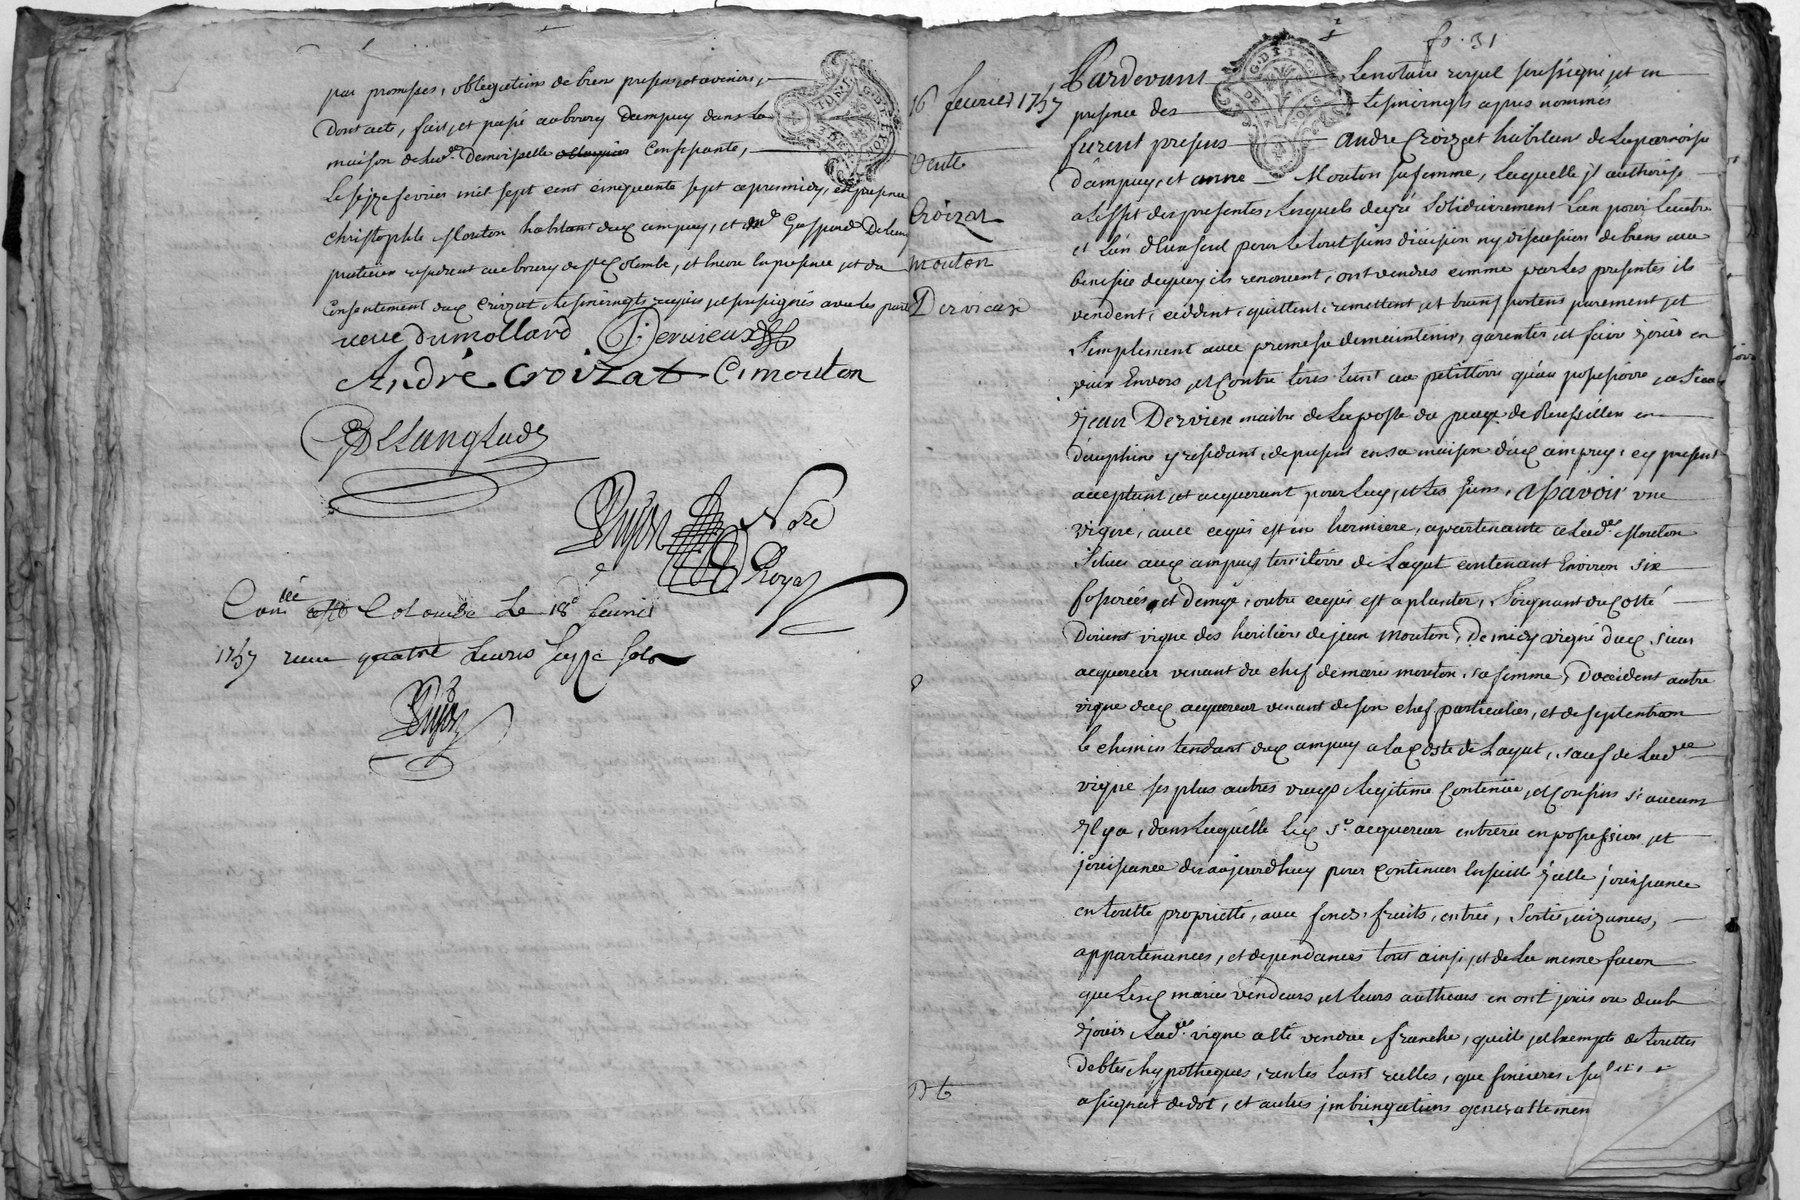 par promesses, obligations de biens presens, et avenirs,
Dont acte, fait, et passé au bourg Dampuy dans la
maison de lad.e Demoiselle confessante,
Le seize fevrier mil sept cent cinquante sept apres midy, en presence
christophle Mouton habitant dud ampuy, et de Gaspard
praticien resident au bourg de Ste Colombe, et encore la presence et du
consentement dud Croizat, les temoings requis et soussignés avec les part
veuve dumollard J: Dervieux
André Croizat C: mouton
DLLanglade
Dujon Nore
Royal
Con lé Colombe Le 18e feurier
1757 receu quatre Livres seize sols
Dujon
fo. 31
16 feurier 1757
Vente
Croizat
mouton
Dervieux
Pardevant Le notaire royal soussigné, et en
presence des temoingts apres nommés
furent presens André Croizat habitant de La parroisse
d'ampuy, et anne Mouton sa femme, Laquelle il authorise
a L'effet des presentes, Lesquels de gré solidairement L'un pour L'autre
et L'un d'eux seul pour le tout sans division ny discussion de biens au
benefice de quoy ils renoncent, ont vendus comme par Les presentes ils
vendent, cèddent, quittent, remettent, et transportent purement, et
simplement avec promesse de maintenir, garentir, et faire jouir en
paix Envers, et Contre tous tant au petittoire qu'au possessoire, a Sieur
Jean Dervieux maitre de La poste du peage de Roussillon en
dauphiné y residant, de present en sa maison dud ampuy, cy present
acceptant, et acquerant pour Luy, et Les siens, asçavoir une
vigne, avec ce qui est en hermiere, apartenante a Lad.e Mouton
située aud ampuy territoire de Layat contenant Environ six
fosserées, et demye, outre ce qui est a planter, joignant du Cotté
Dorient vigne des heritiers de jean mouton, De midy vigne dud sieur
acquereur venant du chef de marie mouton, sa femme, D'occident autre
vigne dud acquereur venant de son chef particulier, et de septentrion
le chemin tendant dud ampuy a La Coste de Layat, sauf de Lad.e
vigne ses plus autres vrays, Legitime Contenüe, et Confins si aucuns
Il y a, dans Laquelle Led Sr acquereur entrera en possession, et
jouissance des aujourdhuy pour Continuer Ensuitte icelle jouissance
en toutte proprietté, avec fonds, fruits, entrée, sortie, aizances,
appartenances, et dependances tout ainsy, et de La meme facon
que Lesd mariés vendeurs, et Leurs autheurs en ont jouis ou deub
jouir, Lad.e vigne a été vendue franche, quitte, et Exempte de touttes
debtes, hypotheques, rentes tant reelles, que foncieres,
assignat de dot, et autres jmbringations generallemen